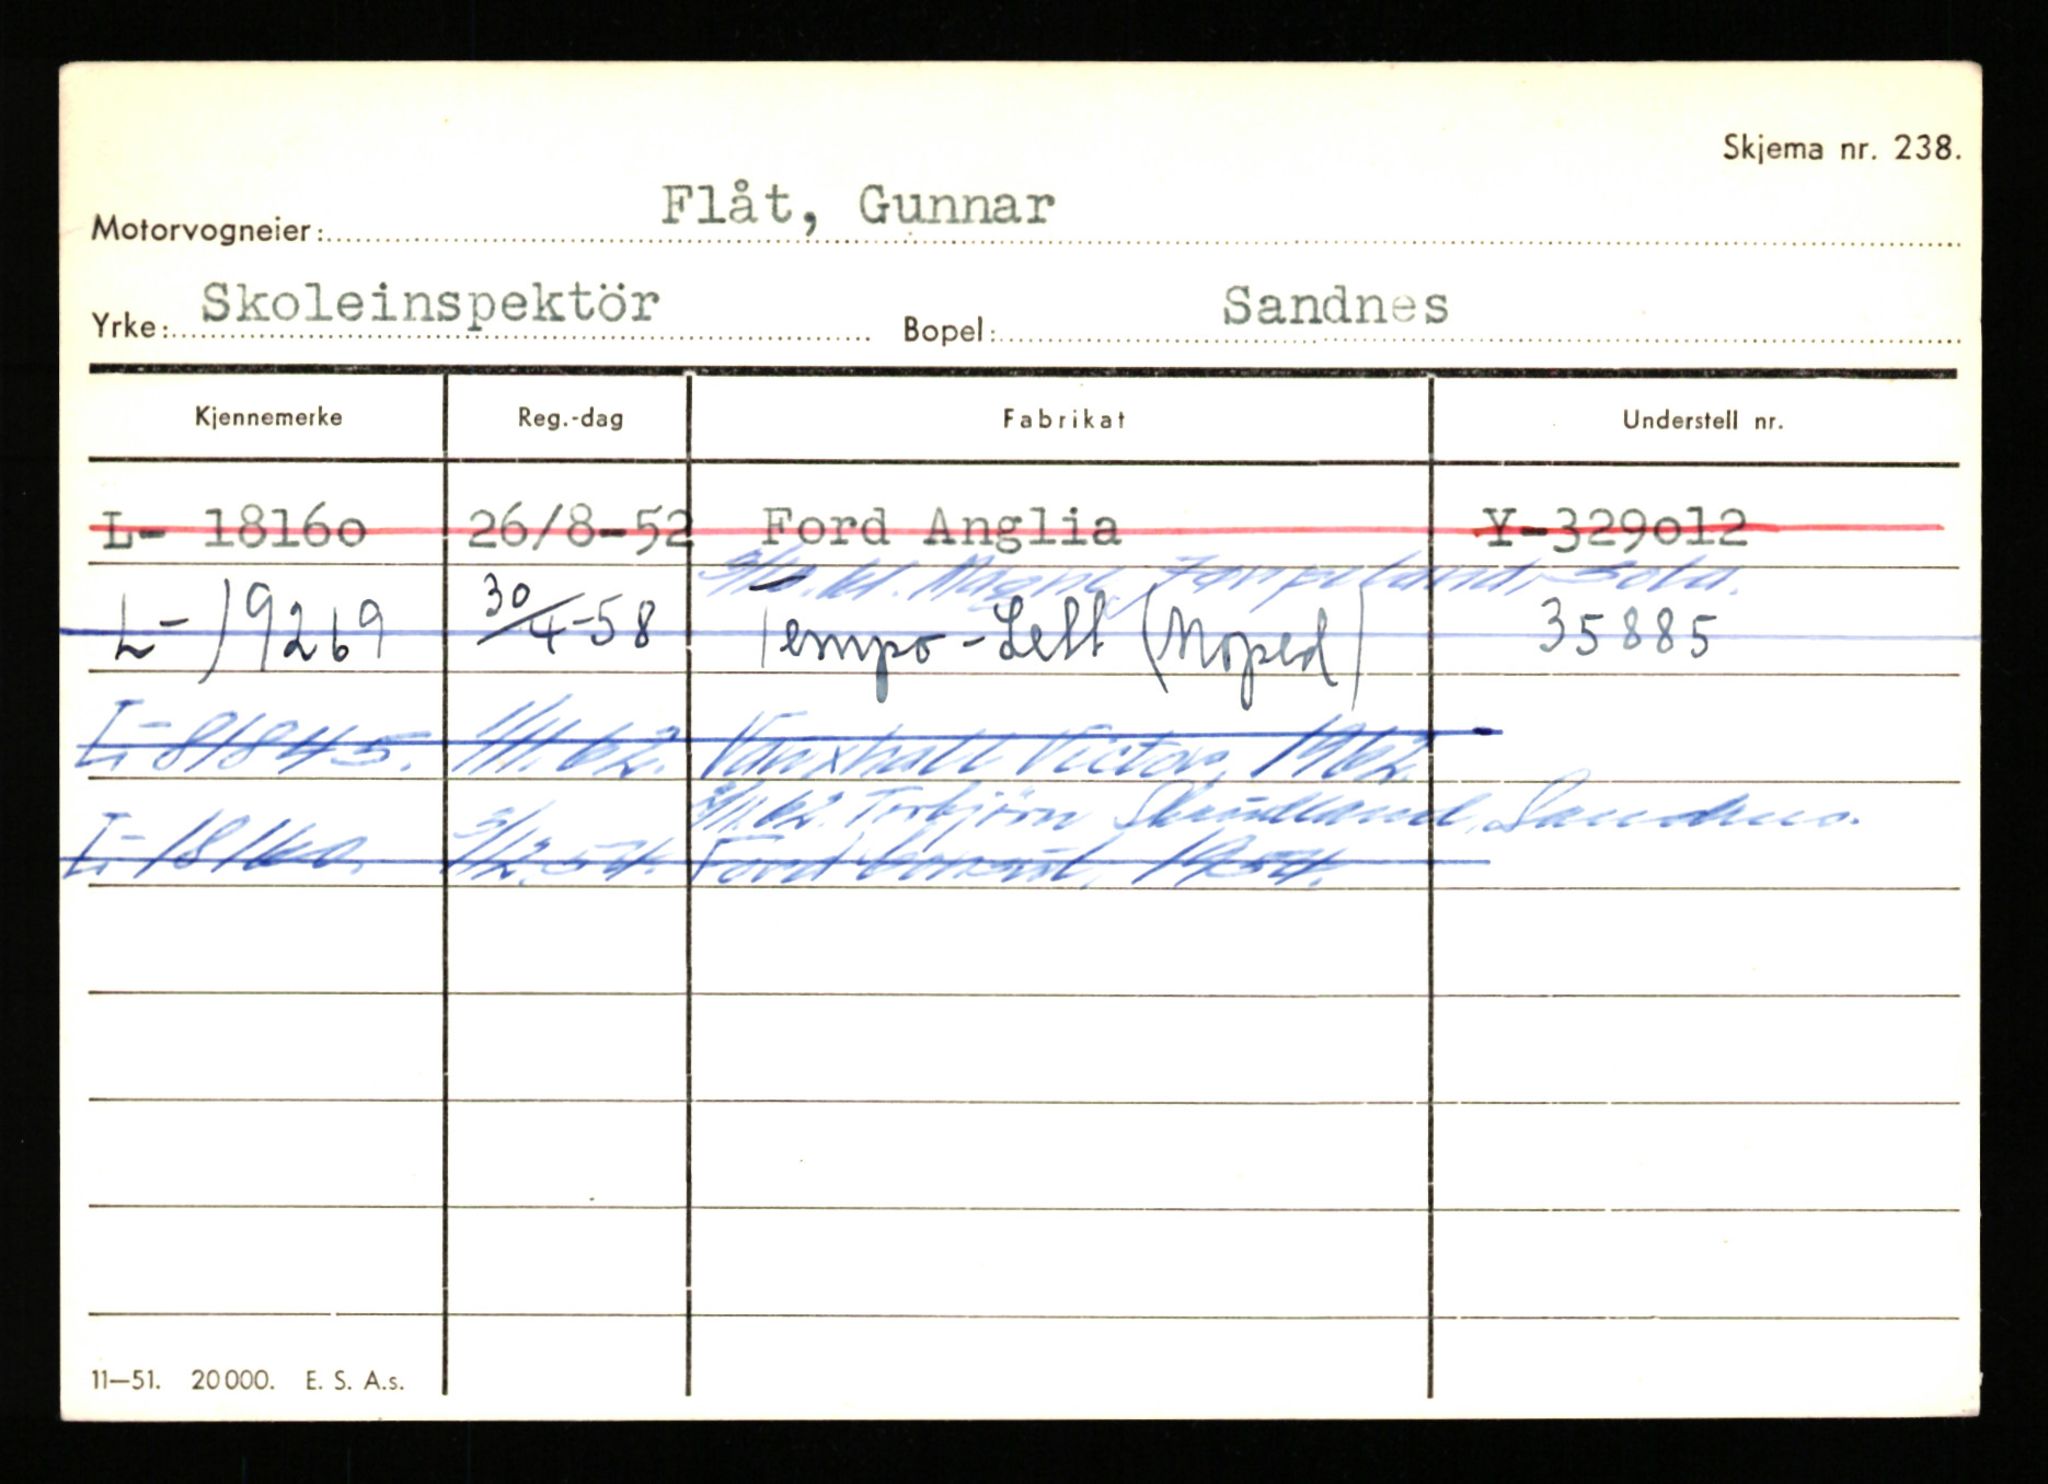 Skjema nr. 238.
Motorvogneier: Flåt, Gunnar
Yrke: Skoleinspektör Bopel: Sandnes
Kjennemerke Reg.-dag Fabrikat Understell nr.
L- 18160 26/8-52 Ford Anglia Y-329012
kl. Magne Sola.
L-19269 30/4-58 Tempo-Lett (Moped) 35885
L-81845. 1/1.62. Vauxhall Victor, 1962.
Torbjørn Skudland, Sandnes.
L-18160. 3/12.54. Ford Consul, 1954.
11—51. 20000. E. S. A.s.